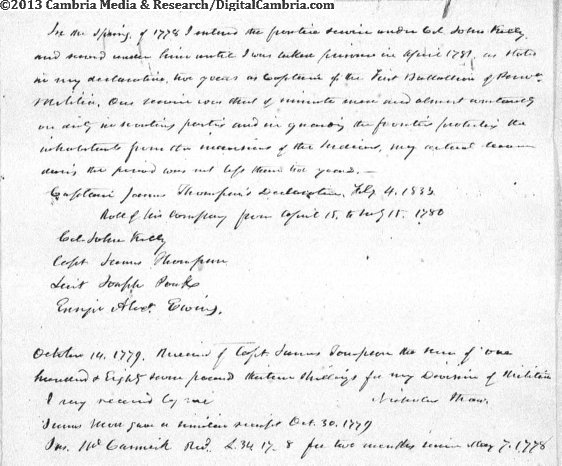 ©2013 Cambria Media & Research/DigitalCambria.com
In the Spring of 1778 I entered the frontier service under Col. John Kelly
and served under him until I was taken prisoner in April 1781, as stated
in my declaration, two years as Captain of the First Battalion of Penna
Militia, Our service was that of minute men and almost constantly
on duty in scouting parties and in guarding the frontier protecting the
inhabitants from the incursions of the Indians, my actual
during the period was not less than two years.—
Captain James Thompson's Declaration, Feby 4. 1833
Roll of his Company from April 15, to 15. 1780
Col. John Kelly
Capt James Thompson
Lieut Joseph
Ensign Alexr. Ewing.
October 14. 1779. Received of Capt. James Thompson the sum of one
hundred & Eighty seven pound thirteen shillings for my Division of Militia
I say received by me Nicholas
James gave a similar receipt Oct. 30. 1779
Jas. McCarmick Recd. L. 34 17. 8 for two months service May 7. 1778